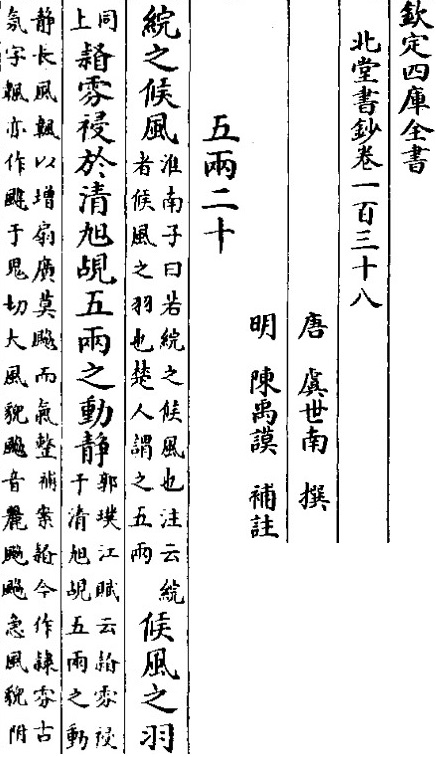 欽定四庫全書
北堂書鈔卷一百三十八
唐 虞世南 撰
明 陳禹謨 補註
五兩二十
綄之候風
淮南子曰若綄之候風也注云綄
者候風之羽也楚人謂之五兩
候風之羽
同
上
雰祲於清旭覘五兩之動靜
郭璞江賦云雰祲
于清旭覘五兩之動
靜長風以增扇廣莫䬅而氣整補案今作隸雰古
氛字亦作颹于鬼切大風貌䬅音麗䬅䬅急風貌附